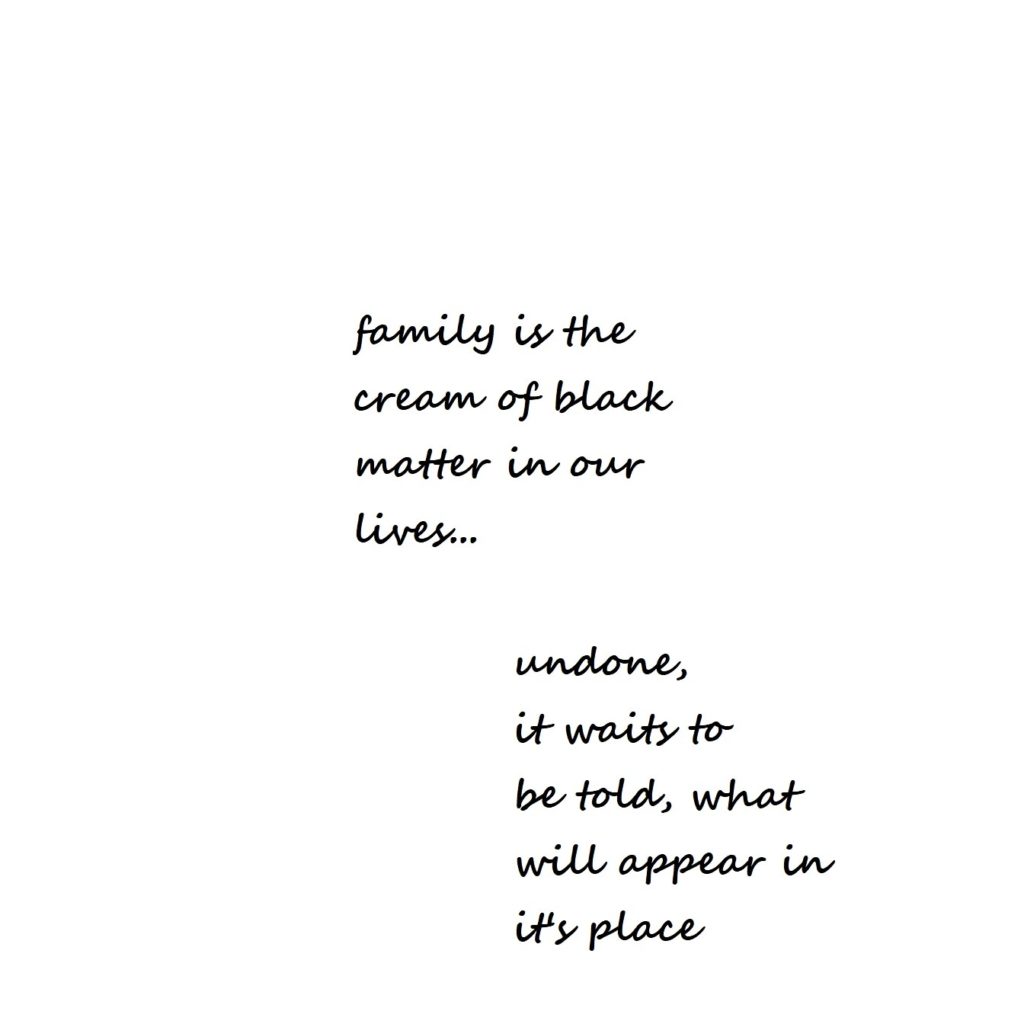 family is the
cream of black
matter in our
lives...
undone,
it waits to
be told, what
will appear in
it's place